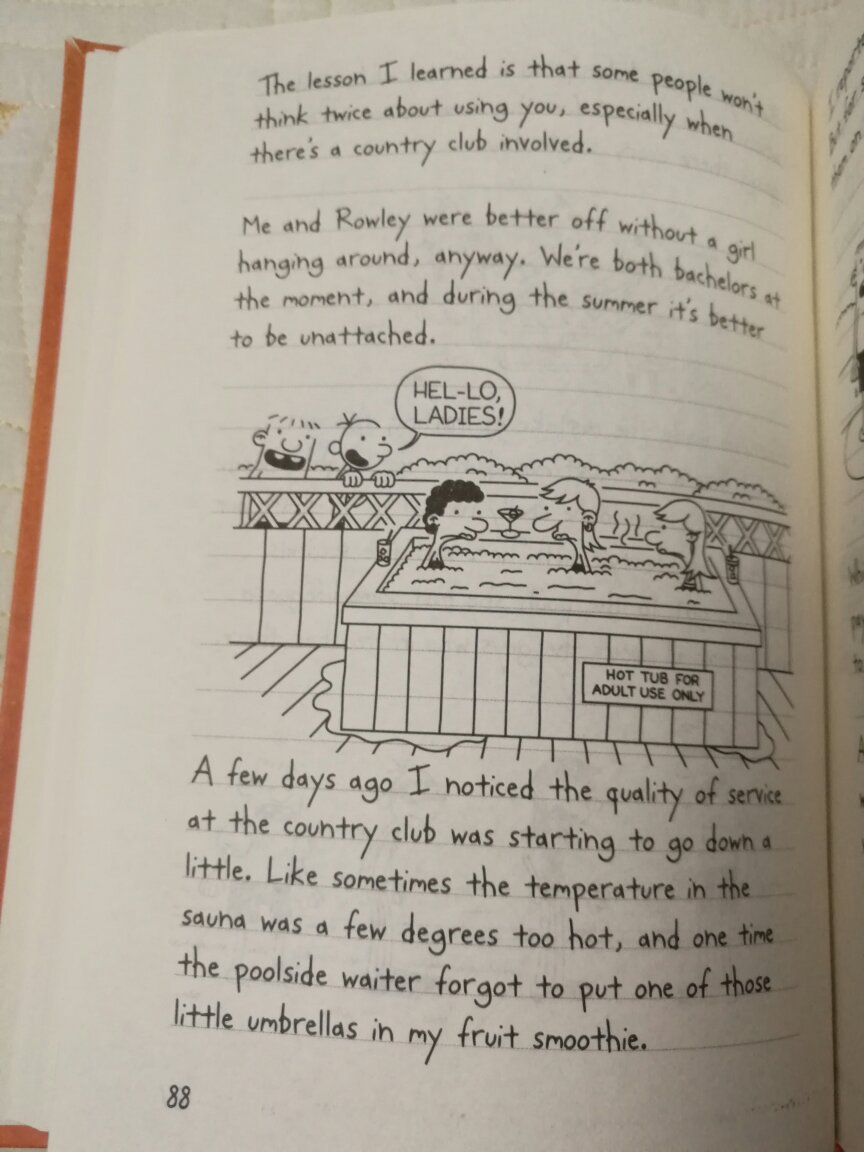 The lesson I learned is that some people won't
think twice about using you, especially when
there's a country club involved.
Me and Rowley were better off without a girl
hanging around, anyway. We're both bachelors at
the moment, and during the summer it's better
to be unattached.
HEL-LO,
LADIES!
HOT TUB FOR
ADULT USE ONLY
A few days ago I noticed the quality of service
at the country club was starting to go down a
little. Like sometimes the temperature in the
sauna was a few degrees too hot, and one time
the poolside waiter forgot to put one of those
little umbrellas in my fruit smoothie.
88